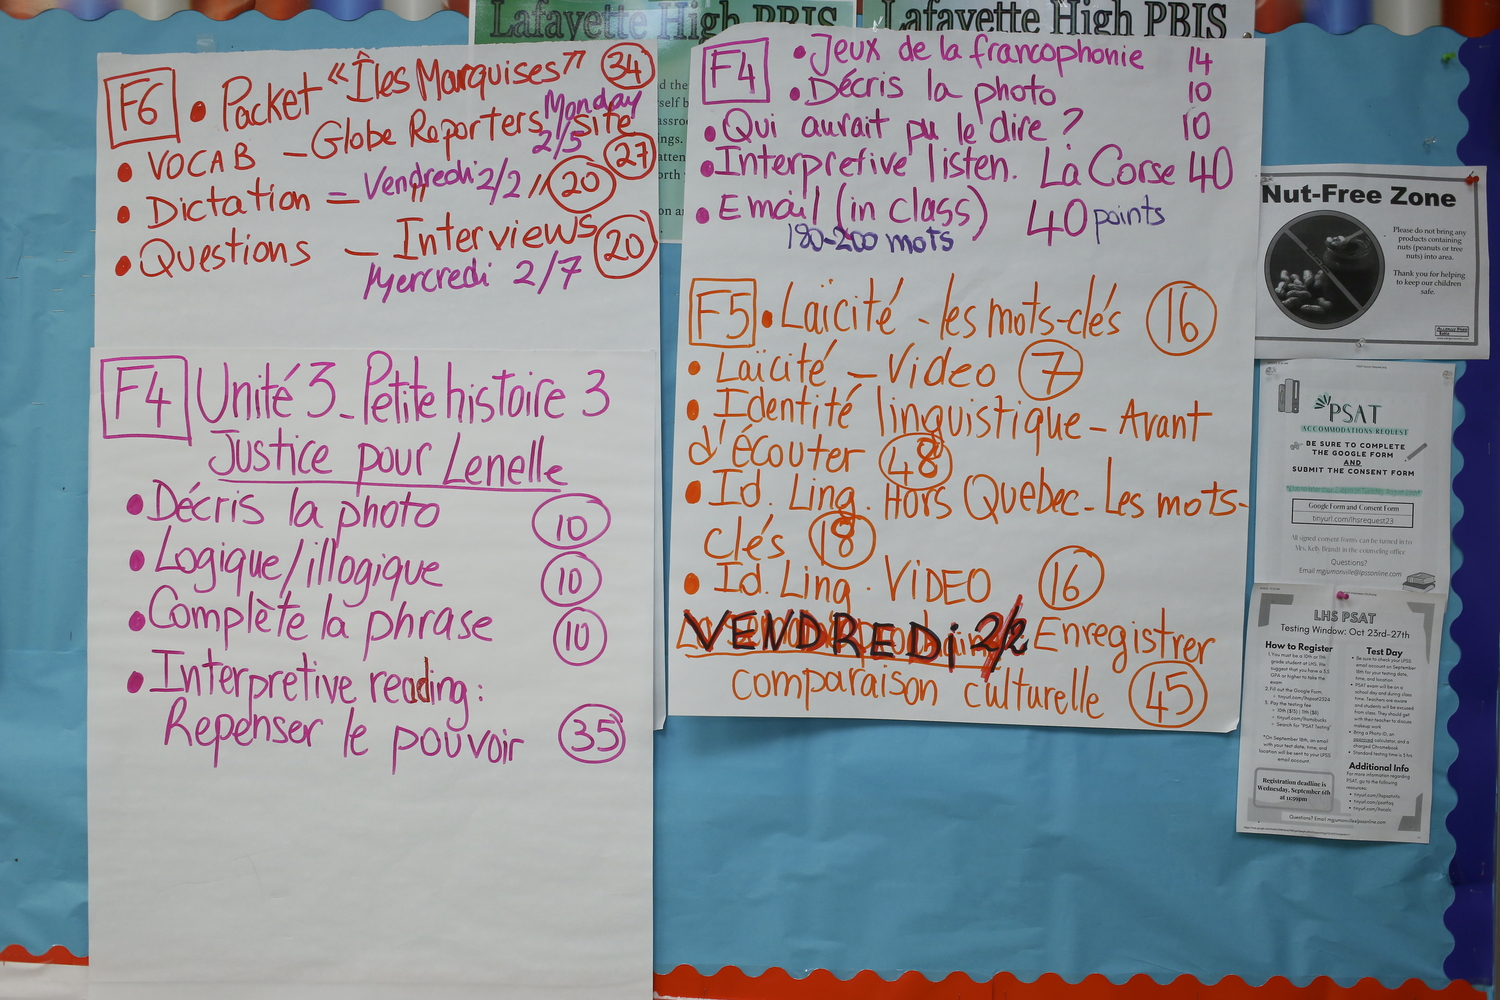 Lafayette High PBIS
Lafayette High PBIS
F6
• Packet "Îles Marquises" 34
Monday
• VOCAB – Globe Reporters site
2/5
27
• Dictation = Vendredi 2/2 // 20
• Questions – Interviews 20
Mercredi 2/7
F4 Unité 3 - Petite histoire 3
Justice pour Lenelle
• Décris la photo 10
• Logique/illogique 10
• Complète la phrase 10
• Interpretive reading:
Repenser le pouvoir 35
F4 • Jeux de la francophonie 14
• Décris la photo 10
• Qui aurait pu le dire? 10
• Interpretive listen. La Corse 40
• Email (in class) 40 points
180-200 mots
F5 • Laïcité - les mots-clés 16
• Laïcité – Video 7
• Identité linguistique – Avant
d'écouter 48
• Id. Ling. Hors Quebec - Les mots-
clés 18
• Id. Ling. VIDEO 16
VENDREDi 2/2 Enregistrer
comparaison culturelle 45
Nut-Free Zone
Please do not bring any
products containing
nuts (peanuts or tree
nuts) into area.
Thank you for helping
to keep our children
safe.
PSAT
ACCOMMODATIONS REQUEST
BE SURE TO COMPLETE
THE GOOGLE FORM
AND
SUBMIT THE CONSENT FORM
Google Form and Consent Form
tinyurl.com/lhsrequest23
All signed consent forms can be turned in to
Mrs. Kelly Brandt in the counseling office
Questions?
Email mgjumonville@lpssonline.com
LHS PSAT
Testing Window: Oct 23rd-27th
How to Register
Test Day
Additional Info
Registration deadline is
Wednesday, September 6th
at 11:59pm
Questions? Email mgjumonville@lpssonline.com